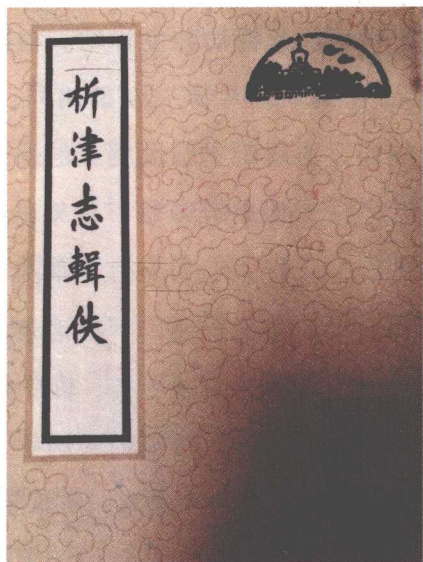 析津志輯佚